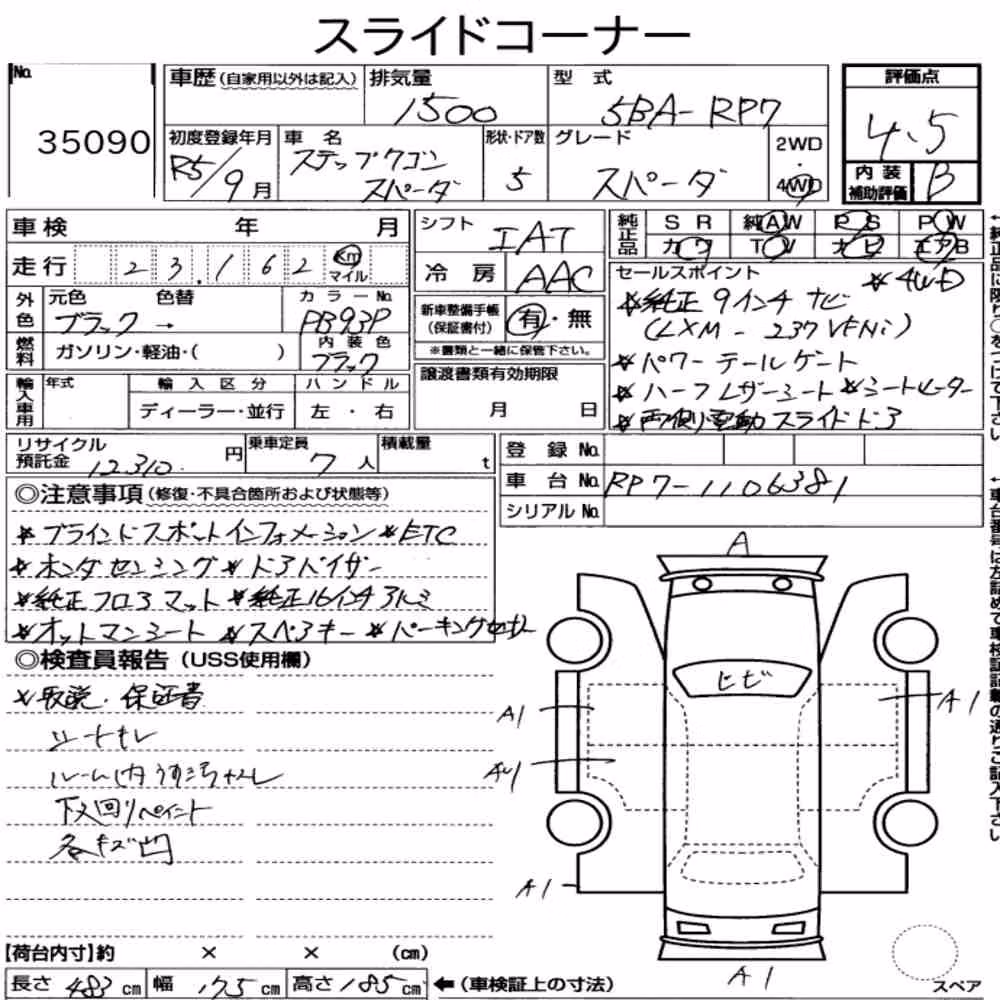 スライドコーナー
No. 35090
車歴(自家用以外は記入)
排気量 1500
型式 5BA-RP7
評価点 4.5
内装補助評価 B
初度登録年月 R5/9月
車名 ステップワゴン スパーダ
形状・ドア数 5
グレード スパーダ
2WD・4WD
車検 年 月
走行 23,162 Km マイル
外色 元色 ブラック → 色替
カラーNo. PB93P
燃料 ガソリン・軽油・( )
内装色 ブラック
輸入車用 年式 輸入区分 ハンドル
ディーラー・並行 左・右
シフト IAT
冷房 AAC
新車整備手帳(保証書付) 有・無
※書類と一緒に保管下さい。
譲渡書類有効期限
月 日
純正品 SR 純AW PS PW
カワ TV ナビ エアB
セールスポイント *4WD
*純正9インチナビ
(LXM-237VFNi)
*パワーテールゲート
*ハーフレザーシート *シートヒーター
*両側電動スライドドア
リサイクル預託金 12,310. 円
乗車定員 7人
積載量 t
登録No.
車台No. RP7-1106381
シリアルNo.
◎注意事項(修復・不具合箇所および状態等)
*ブラインドスポットインフォメーション *ETC
*ホンダセンシング *ドアバイザー
*純正フロアマット *純正16インチアルミ
*オットマンシート *スペアキー *パーキングセンサー
◎検査員報告(USS使用欄)
*取説・保証書
シートキレ
ルーム内うすごチャレ
下回りペイント
各キズ凹
A
ヒビ
A1
A1
A1
A1
A1
スペア
【荷台内寸】約 × × (cm)
長さ 483 cm 幅 175 cm 高さ 185 cm ←(車検証上の寸法)